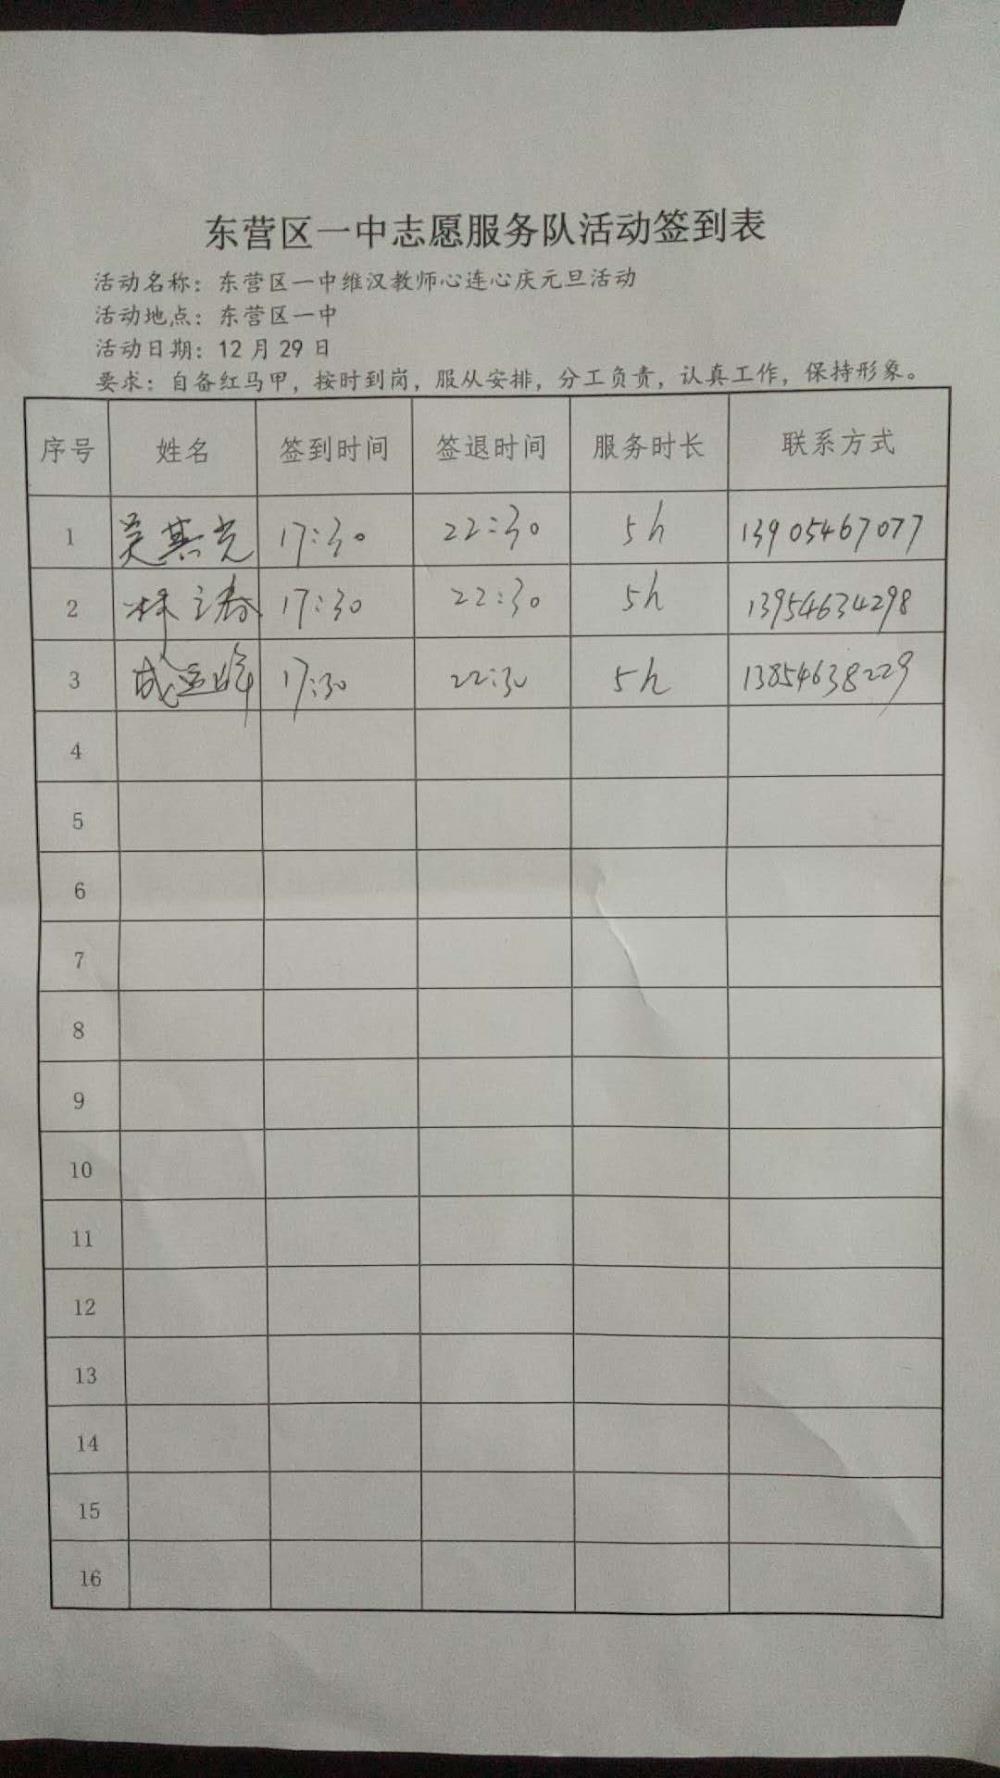 东营区一中志愿服务队活动签到表
活动名称：东营区一中维汉教师心连心庆元旦活动
活动地点：东营区一中
活动日期：12月29日
要求：自备红马甲，按时到岗，服从安排，分工负责，认真工作，保持形象。
序号 姓名 签到时间 签退时间 服务时长 联系方式
1 吴其光 17:30 22:30 5h 13905467077
2 林 17:30 22:30 5h 13954634298
3 成 17:30 22:30 5h 13854638229
4
5
6
7
8
9
10
11
12
13
14
15
16